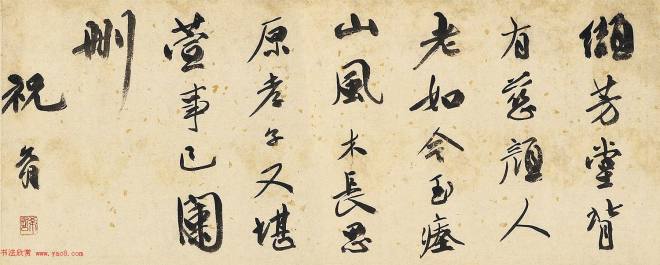 芳堂背
有慈顔人
老如今玉瘞
山風木長思
原孝子又堪
萱事已圖
删
祝
书法欣赏 www.yac8.com